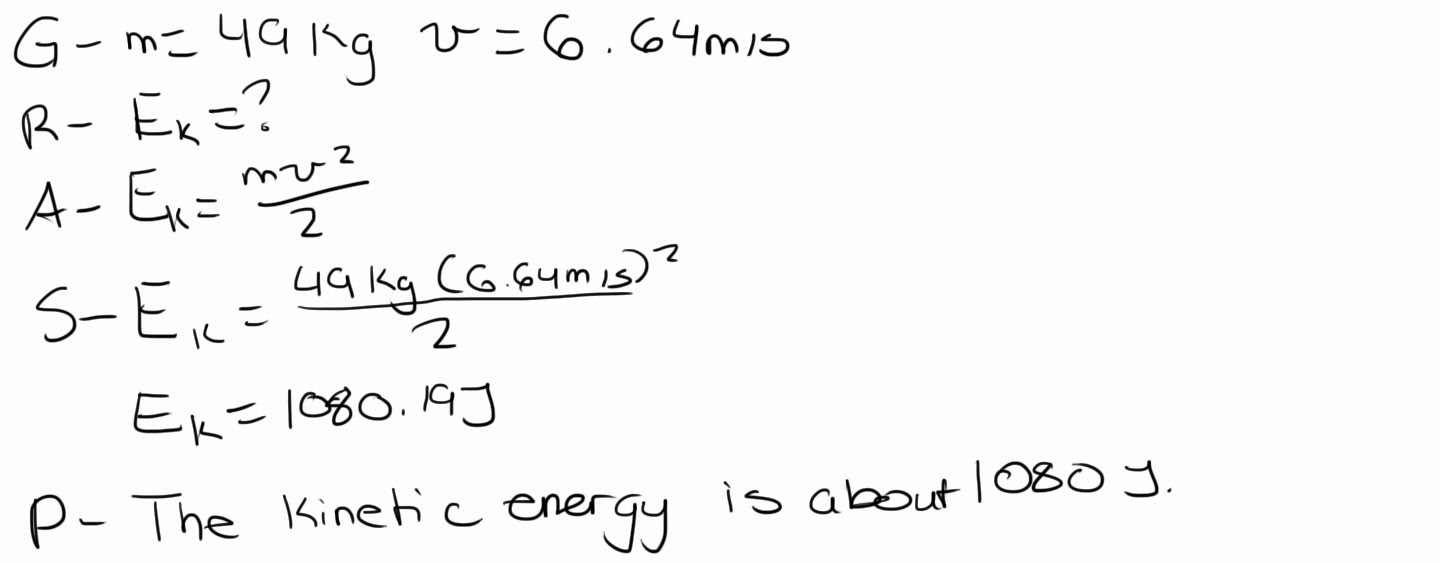 G - m = 49 kg v = 6.64 m/s
R - Eₖ = ?
A - Eₖ = mv²/2
S - Eₖ = 49 kg (6.64 m/s)²/2
Eₖ = 1080.19 J
P - The kinetic energy is about 1080 J.